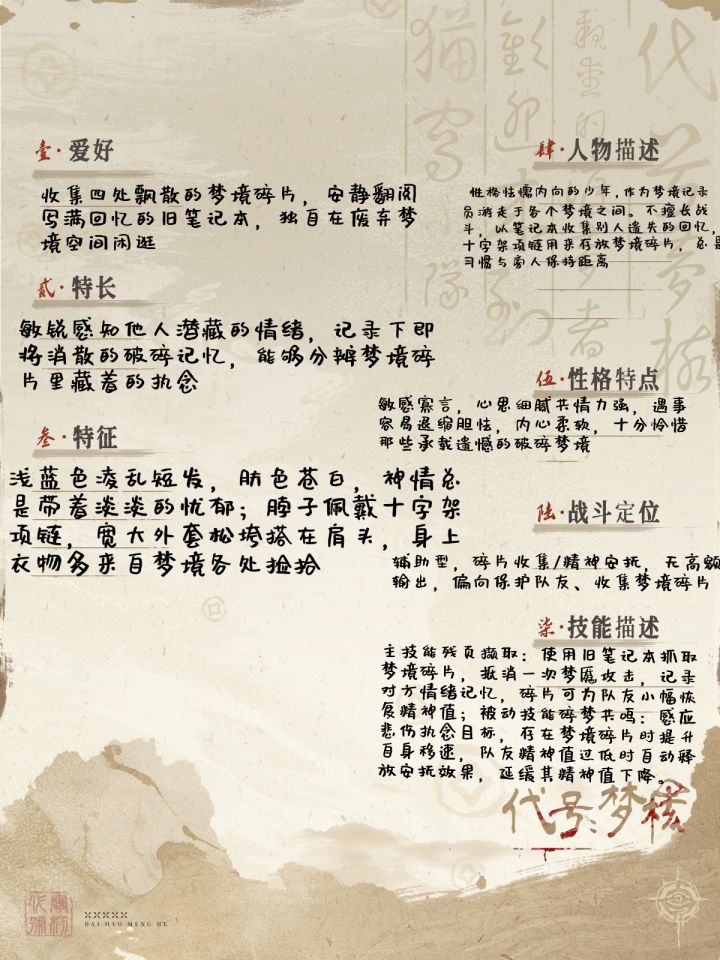 壹·爱好
收集四处飘散的梦境碎片，安静翻阅
写满回忆的旧笔记本，独自在废弃梦
境空间闲逛
贰·特长
敏锐感知他人潜藏的情绪，记录下即
将消散的破碎记忆，能够分辨梦境碎
片里藏着的执念
叁·特征
浅蓝色凌乱短发，肤色苍白，神情总
是带着淡淡的忧郁；脖子佩戴十字架
项链，宽大外套松垮搭在肩头，身上
衣物多来自梦境各处捡拾
肆·人物描述
性格怯懦内向的少年，作为梦境记录
员游走于各个梦境之间。不擅长战
斗，以笔记本收集别人遗失的回忆，
十字架项链用来存放梦境碎片，总是
习惯与旁人保持距离
伍·性格特点
敏感寡言，心思细腻共情力强，遇事
容易退缩胆怯，内心柔软，十分怜惜
那些承载遗憾的破碎梦境
陆·战斗定位
辅助型，碎片收集/精神安抚，无高额
输出，偏向保护队友、收集梦境碎片
柒·技能描述
主技能残页撷取：使用旧笔记本抓取
梦境碎片，抵消一次梦魇攻击，记录
对方情绪记忆，碎片可为队友小幅恢
复精神值；被动技能碎梦共鸣：感应
悲伤执念目标，存在梦境碎片时提升
自身移速，队友精神值过低时自动释
放安抚效果，延缓其精神值下降。
代号：梦核
×××××
DAI HAO MENG HE